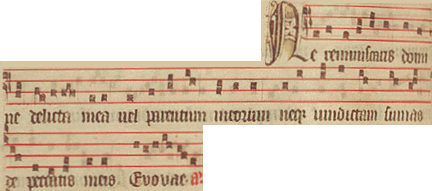 Ne reminiscaris domi
ne delicta mea uel parentum meorum neq; uindictam sumas
de peccatis meis. Euouae. a